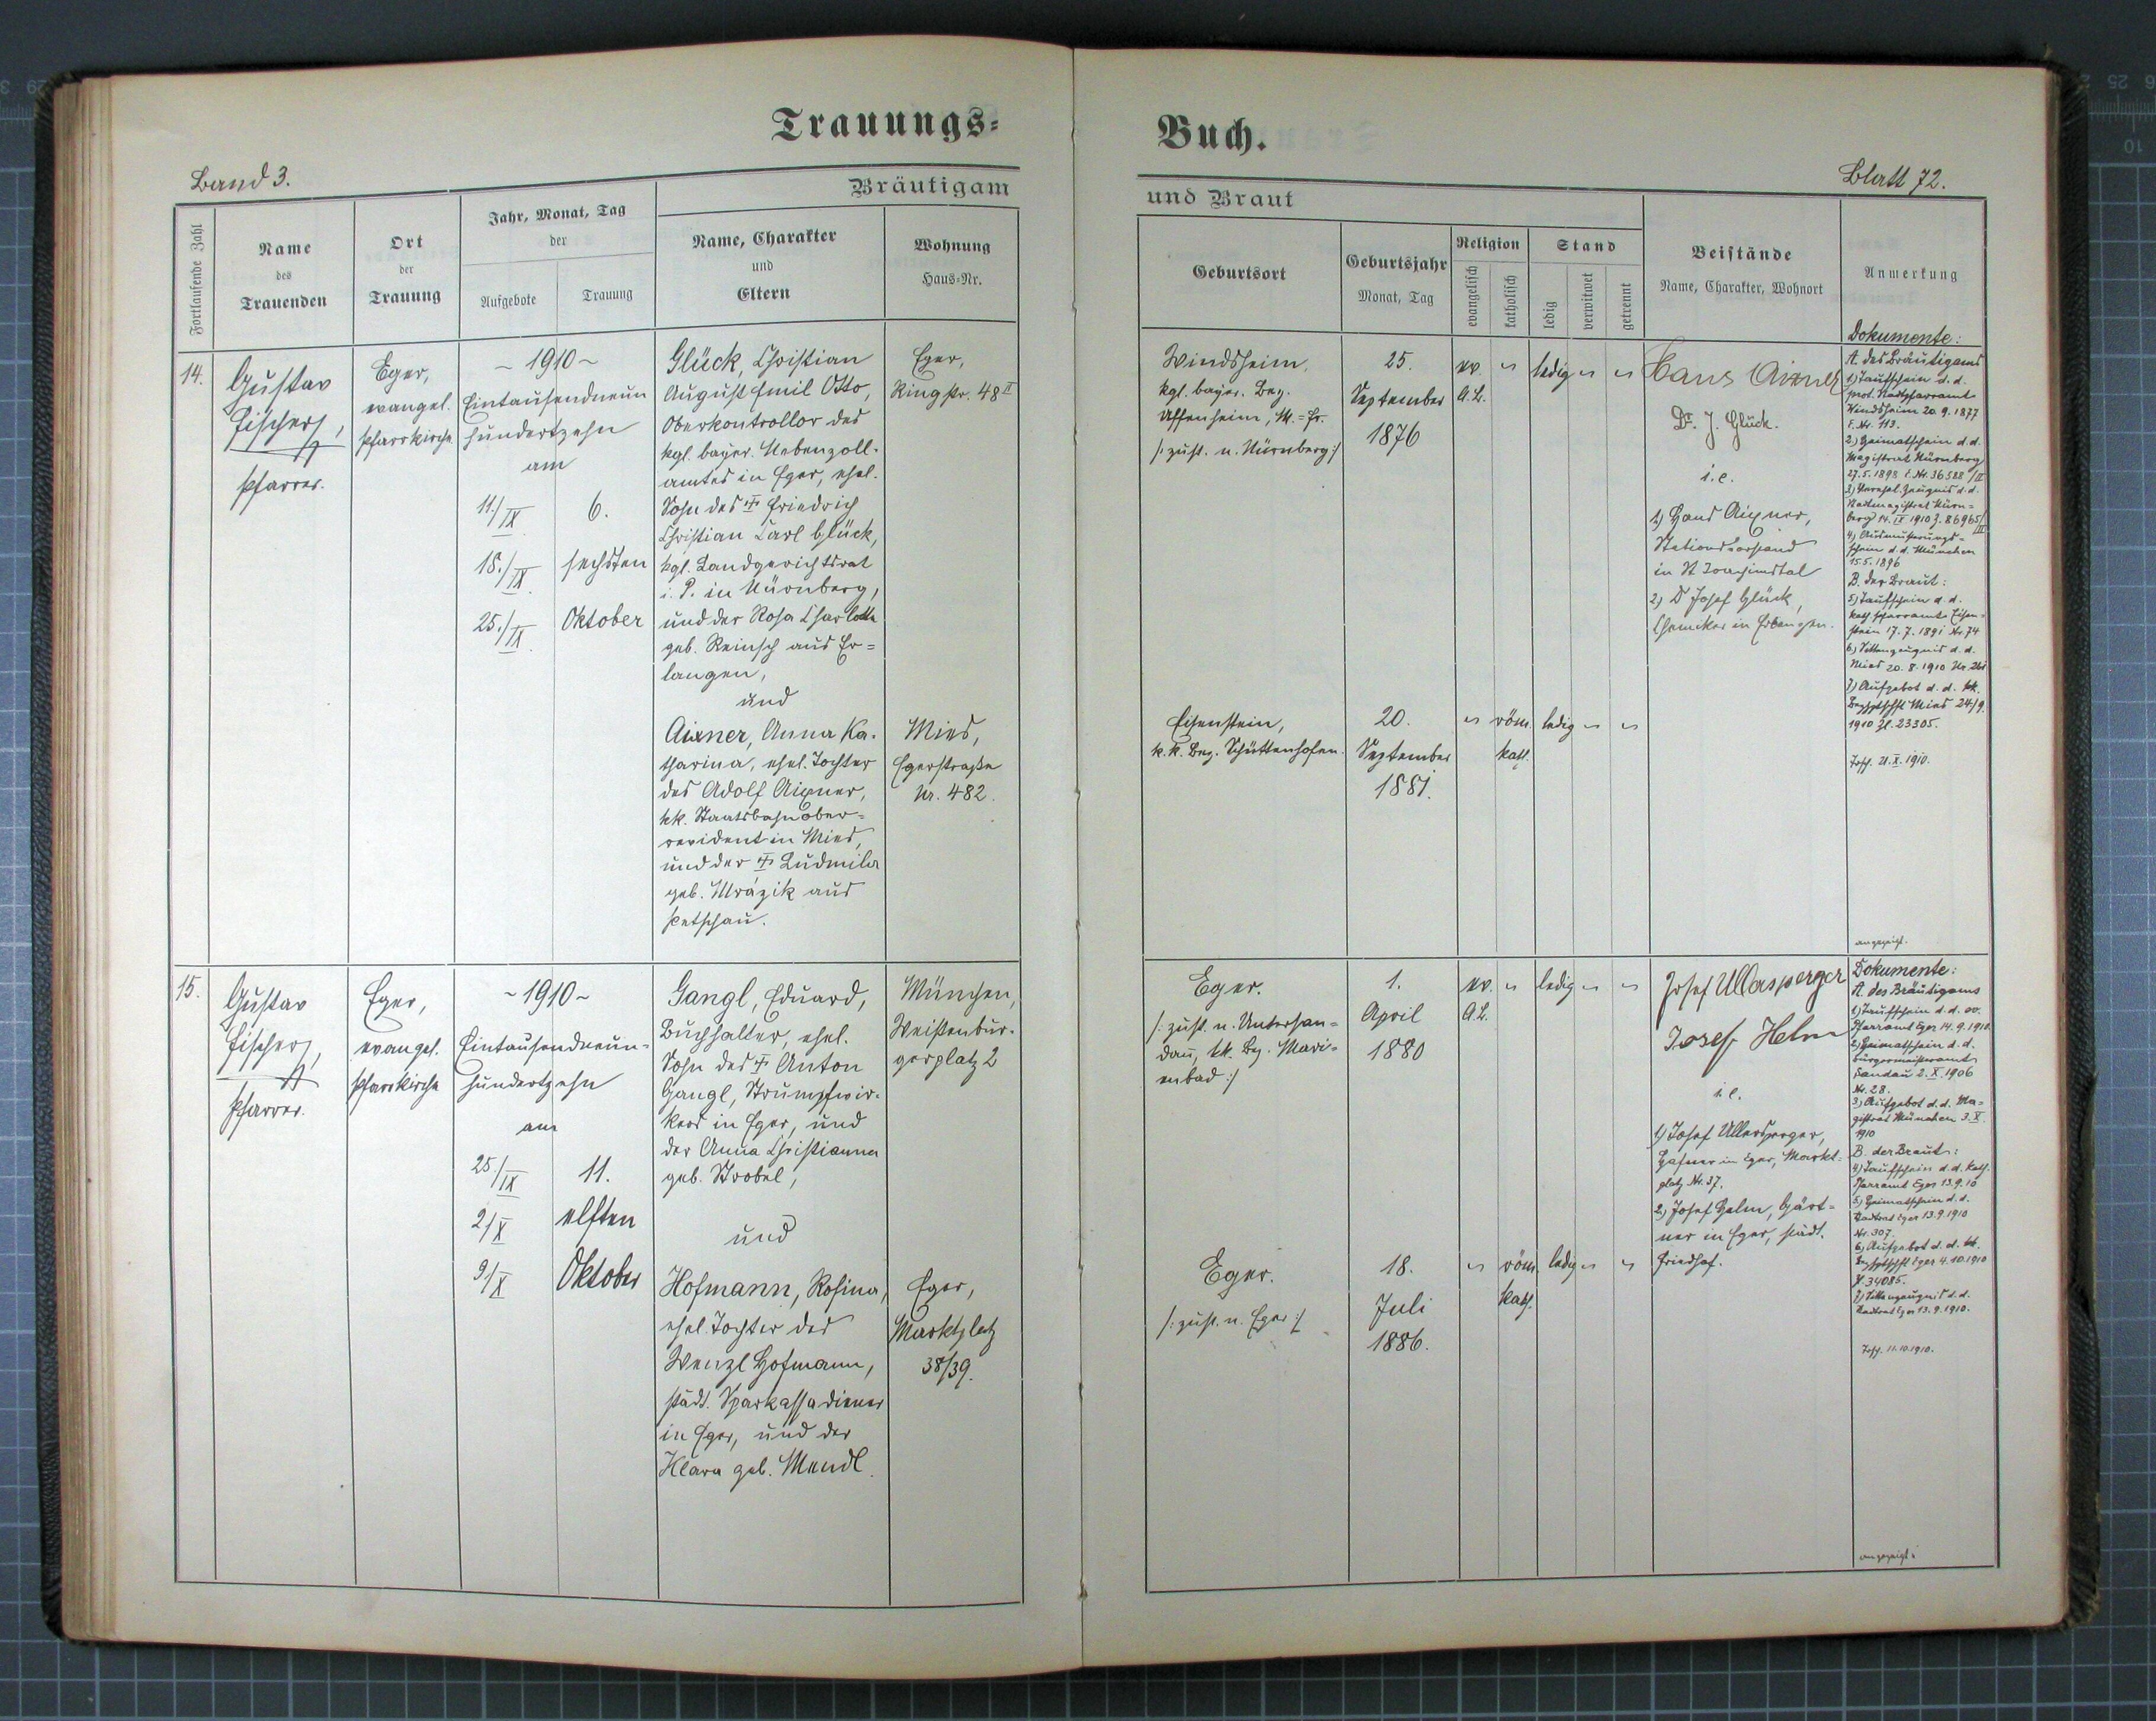 Trauungs=
Buch.
Band 3.
Blatt 72.
Bräutigam
und Braut
Fortlaufende Zahl
Name
des
Trauenden
Ort
der
Trauung
Jahr, Monat, Tag
der
Aufgebote
Trauung
Name, Charakter
und
Eltern
Wohnung
Haus=Nr.
Geburtsort
Geburtsjahr
Monat, Tag
Religion
evangelisch
katholisch
Stand
ledig
verwitwet
getrennt
Beistände
Name, Charakter, Wohnort
Anmerkung
14.
Gustav
Fischer,
Pfarrer.
Eger,
evangel.
Pfarrkirche
~ 1910 ~
Eintausendneun
hundertzehn
am
11./IX
18./IX
25./IX
6.
sechsten
Oktober
Glück, Christian
August Emil Otto,
Oberkontrollor des
kgl. bayer. Nebenzoll-
amtes in Eger, ehel.
Sohn des † Friedrich
Christian Carl Glück,
kgl. Landgerichtsrat
i. P. in Nürnberg,
und der Rosa Charlotte
geb. Reinsch aus Er=
langen,
und
Aixner, Anna Ka-
tharina, ehel. Tochter
des Adolf Aixner,
kk. Staatsbahnober=
revident in Mies,
und der † Ludmila
geb. Mrázik aus
Petschau.
Eger,
Ringstr. 48 II
Mies,
Egerstraße
Nr. 482.
Windsheim,
kgl. bayer. Bez.
Uffenheim, M.=Fr.
/: zust. n. Nürnberg :/
25.
September
1876
ev. " ledig " "
A.B.
Eisenstein,
k. k. Bez. Schüttenhofen.
20.
September
1881.
" röm. ledig " "
kath.
Hans Aixner
Dr. J. Glück.
i. e.
1) Hans Aixner,
Stationsvorstand
in St Joachimstal
2) Dr Josef Glück,
Chemiker in Erlangen.
Dokumente:
A. des Bräutigams
1) Taufschein d. d.
prot. Stadtpfarramt
Windsheim 20. 9. 1877
F. Nr. 113.
2) Heimatschein d. d.
Magistrat Nürnberg
27. 5. 1898 Nr. 36588/II
3) Verehel. Zeugnis d. d.
Stadtmagistrat Nürn=
berg 14. IX 1910 Z. 86965/III
4) Ausmusterungs=
schein d. d. München
15. 5. 1896
B. der Braut:
5) Taufschein d. d.
kath. Pfarramt Eisen=
stein 17. 7. 1891 Nr. 74
6) Sittenzeugnis d. d.
Mies 20. 8. 1910
7) Aufgebot d. d. kk.
Bezhptschft Mies 24/9.
1910 Zl. 23305.
21. X. 1910.
angezeigt.
15.
Gustav
Fischer,
Pfarrer.
Eger,
evangel.
Pfarrkirche
~ 1910 ~
Eintausendneun=
hundertzehn
am
25./IX
2/X
9/X
11.
elften
Oktober
Gangl, Eduard,
Buchhalter, ehel.
Sohn des † Anton
Gangl, Strumpfwir-
kers in Eger, und
der Anna Christianna
geb. Strobel,
und
Hofmann, Rosina,
ehel. Tochter des
Wenzl Hofmann,
städt. Sparkassadiener
in Eger, und der
Klara geb. Mendl.
München,
Weißenbur-
gerplatz 2
Eger,
Marktplatz
38/39.
Eger.
/: zust. n. Untersan=
dau, kk. Bez. Mari=
enbad :/
1.
April
1880
ev. " ledig " "
A.B.
Eger.
/: zust. n. Eger :/
18.
Juli
1886.
" röm. ledig " "
kath.
Josef Ullersperger
Josef Helm
i. e.
1) Josef Ullersperger,
Hafner in Eger, Markt=
platz Nr. 37.
2) Josef Helm, Gärt=
ner in Eger, städt.
Friedhof.
Dokumente:
A. des Bräutigams
1) Taufschein d. d. ev.
Pfarramt Eger 14. 9. 1910.
2) Heimatschein d. d.
Bürgermeisteramt
Sandau 2. X. 1906
Nr. 28.
3) Aufgebot d. d. Ma=
gistrat München 3. X.
1910
B. der Braut:
4) Taufschein d. d. kath.
Pfarramt Eger 13. 9. 10
5) Heimatschein d. d.
Stadtrat Eger 13. 9. 1910
Nr. 307.
6) Aufgebot d. d. kk.
Bezhptschft Eger 4. 10. 1910
Z. 34085.
7) Sittenzeugnis d. d.
Stadtrat Eger 13. 9. 1910.
11. 10. 1910.
angezeigt.